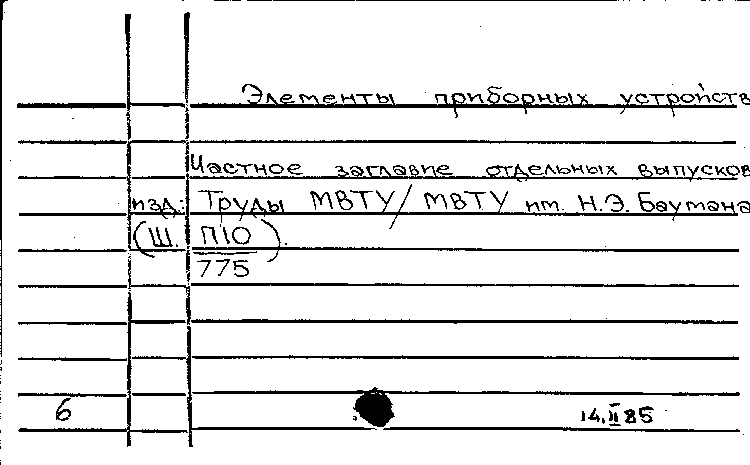 Элементы приборных устройств
Частное заглавие отдельных выпусков
изд.: Труды МВТУ/ МВТУ им. Н.Э. Баумана
(Ш. П10
775).
6 14.II 85